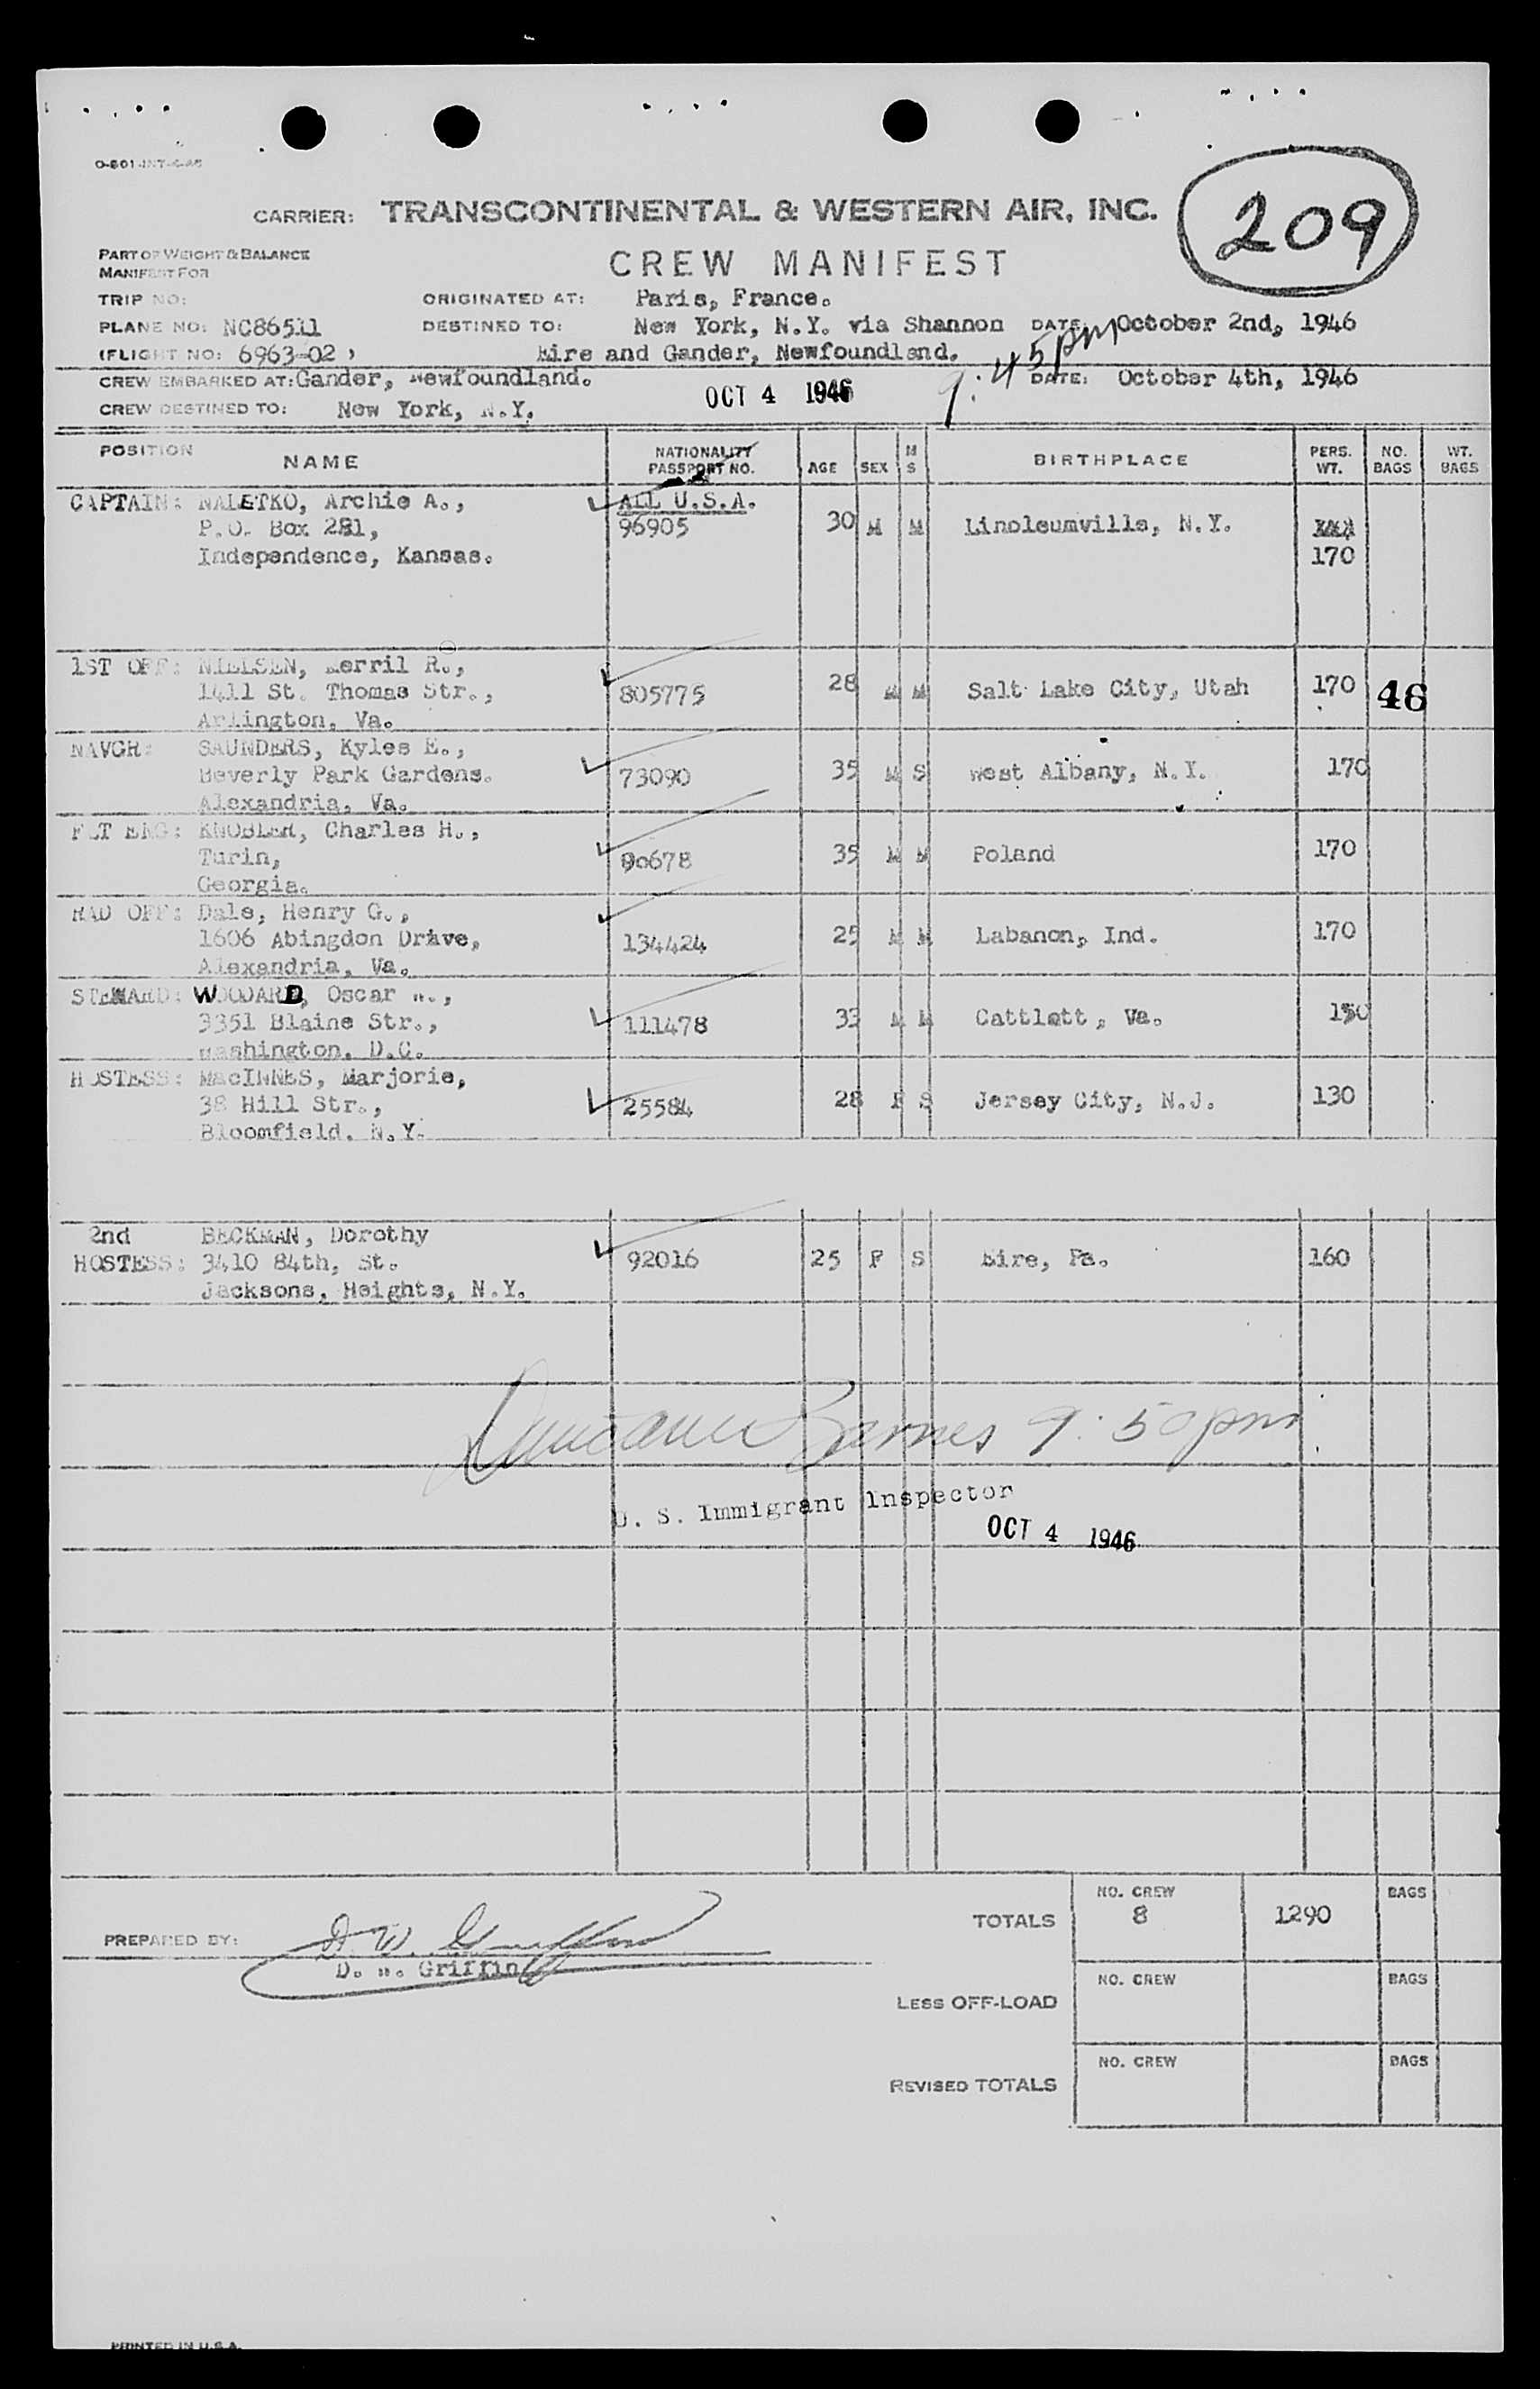 O-801-INT-4-46
CARRIER: TRANSCONTINENTAL & WESTERN AIR, INC.
209
PART OF WEIGHT & BALANCE
MANIFEST FOR
CREW MANIFEST
TRIP NO: ORIGINATED AT: Paris, France.
PLANE NO: NC86511 DESTINED TO: New York, N.Y. via Shannon DATE: October 2nd, 1946
(FLIGHT NO: 6963-02 ) Eire and Gander, Newfoundland.
9:45pm
CREW EMBARKED AT: Gander, Newfoundland. DATE: October 4th, 1946
OCT 4 1946
CREW DESTINED TO: New York, N.Y.
POSITION NAME NATIONALITY PASSPORT NO. AGE SEX M S BIRTHPLACE PERS. WT. NO. BAGS WT. BAGS
CAPTAIN: NALETKO, Archie A., ALL U.S.A.
P.O. Box 281, 96905 30 M M Linoleumville, N.Y.
Independence, Kansas. 170
1ST OFF: NIELSEN, Merril R.,
1411 St. Thomas Str., 805775 28 M M Salt Lake City, Utah 170 46
Arlington, Va.
NAVGR: SAUNDERS, Kyles E.,
Beverly Park Gardens. 73090 35 M S West Albany, N.Y. 170
Alexandria, Va.
FLT ENG: KNOBLER, Charles H.,
Turin, 90678 35 M M Poland 170
Georgia.
RAD OFF: Dale, Henry G.,
1606 Abingdon Drive, 134424 25 M M Labanon, Ind. 170
Alexandria, Va.
STEWARD: WOODARD, Oscar W.,
3351 Blaine Str., 111478 33 M M Cattlett, Va. 150
Washington, D.C.
HOSTESS: MacINNES, Marjorie,
38 Hill Str., 25584 28 F S Jersey City, N.J. 130
Bloomfield, N.Y.
2nd BECKMAN, Dorothy
HOSTESS: 3410 84th, St. 92016 25 F S Eire, Pa. 160
Jacksons, Heights, N.Y.
Barnes 9:50pm
U. S. Immigrant Inspector
OCT 4 1946
TOTALS NO. CREW 8 1290 BAGS
PREPARED BY: D. W. Griffin
D. W. Griffin
LESS OFF-LOAD NO. CREW BAGS
REVISED TOTALS NO. CREW BAGS
PRINTED IN U.S.A.